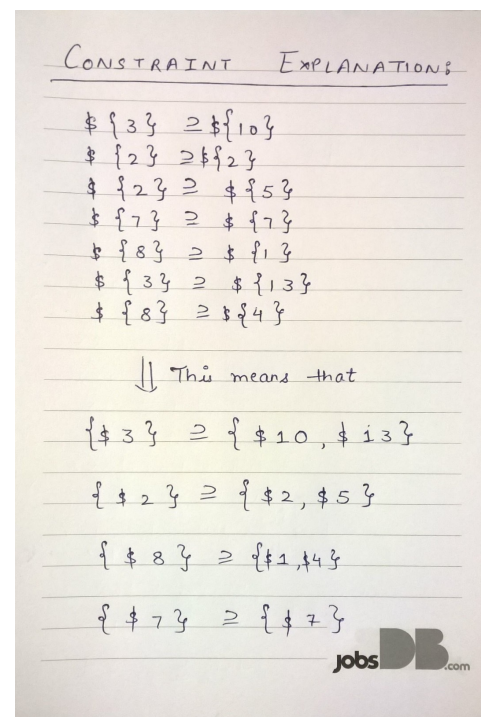 CONSTRAINT EXPLANATION:
$ {3} ⊇ ${10}
$ {2} ⊇ ${2}
$ {2} ⊇ $ {5}
$ {7} ⊇ $ {7}
$ {8} ⊇ $ {1}
$ {3} ⊇ $ {13}
$ {8} ⊇ ${4}
⇓ This means that
{$ 3} ⊇ { $10, $ 13}
{ $ 2 } ⊇ { $2, $5 }
{ $ 8 } ⊇ {$1,$4}
{ $ 7 } ⊇ { $ 7 }
jobsDB.com